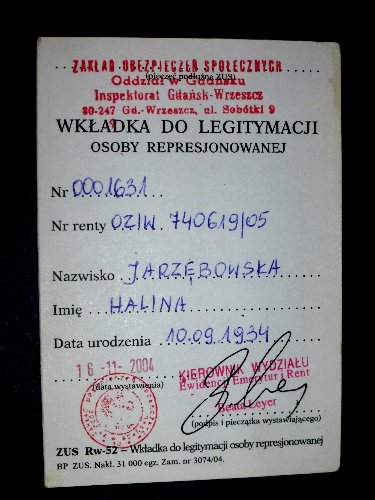 ZAKŁAD UBEZPIECZEŃ SPOŁECZNYCH
(pieczęć podłużna ZUS)
Oddział w Gdańsku
Inspektorat Gdańsk-Wrzeszcz
80-247 Gd.-Wrzeszcz, ul. Sobótki 9
WKŁADKA DO LEGITYMACJI
OSOBY REPRESJONOWANEJ
Nr 0001631
Nr renty OZIW. 740619/05
Nazwisko JARZĘBOWSKA
Imię HALINA
Data urodzenia 10.09.1934
16-11-2004
(data wystawienia)
KIEROWNIK WYDZIAŁU
Ewidencji Emerytur i Rent
Beata Leyer
(podpis i pieczątka wystawiającego)
ZUS Rw-52 – Wkładka do legitymacji osoby represjonowanej
BP ZUS. Nakł. 31 000 egz. Zam. nr 3074/04.